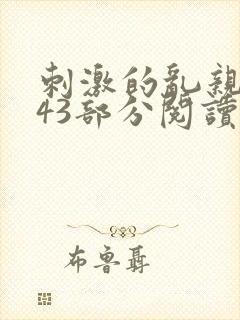 刺激的亂親
43部分閱讀
布魯聶